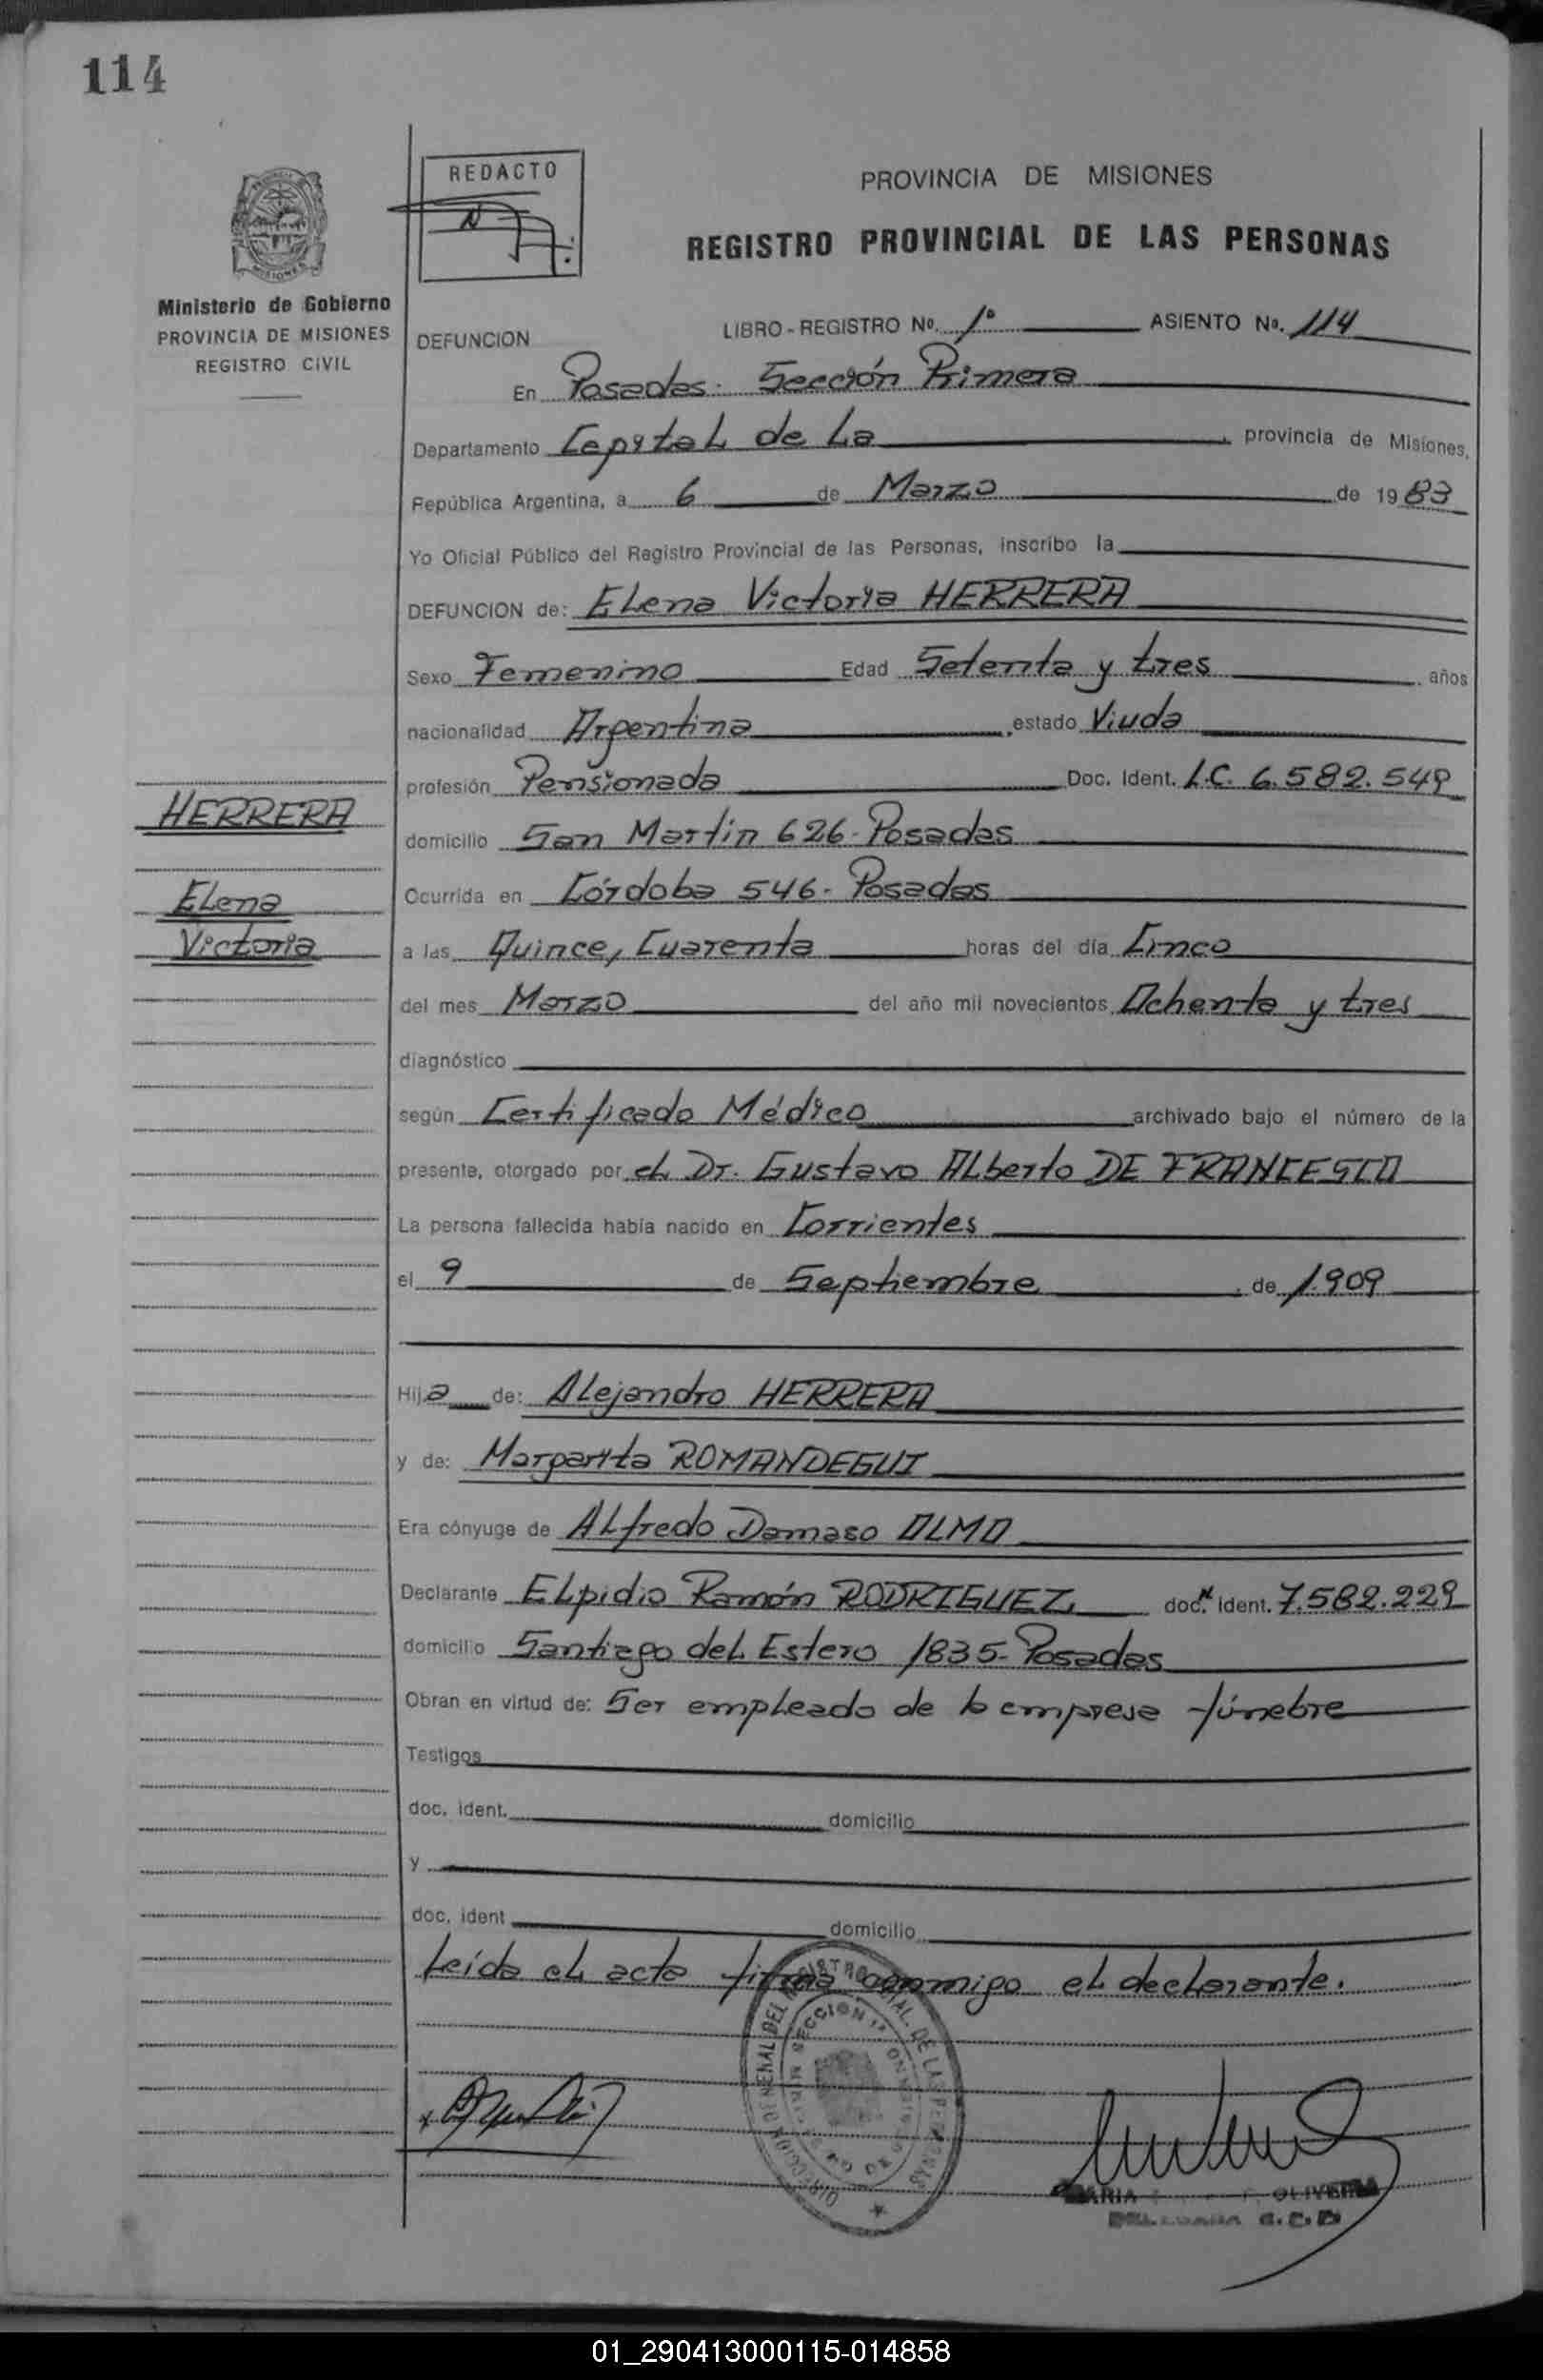 114
REDACTO
PROVINCIA DE MISIONES
REGISTRO PROVINCIAL DE LAS PERSONAS
Ministerio de Gobierno
PROVINCIA DE MISIONES
REGISTRO CIVIL
DEFUNCION LIBRO-REGISTRO No. 1º ASIENTO No. 114
En Posadas. Sección Primera
Departamento Capital de La, provincia de Misiones,
República Argentina, a 6 de Marzo de 1983
Yo Oficial Público del Registro Provincial de las Personas, inscribo la
DEFUNCION de: Elena Victoria HERRERA
Sexo Femenino Edad Setenta y tres años
nacionalidad Argentina, estado Viuda
profesión Pensionada Doc. Ident. L.C. 6.582.549
HERRERA
domicilio San Martin 626-Posadas
Elena
Ocurrida en Córdoba 546-Posadas
Victoria
a las Quince, Cuarenta horas del día Cinco
del mes Marzo del año mil novecientos Ochenta y tres
diagnóstico
según Certificado Médico archivado bajo el número de la
presente, otorgado por el Dr. Gustavo Alberto DE FRANCESCO
La persona fallecida había nacido en Corrientes
el 9 de Septiembre, de 1.909
Hija de: Alejandro HERRERA
y de: Margarita ROMANDEGUI
Era cónyuge de Alfredo Damaso OLMO
Declarante Elpidio Ramón RODRIGUEZ, doc. ident. 7.582.229
domicilio Santiago del Estero 1835-Posadas
Obran en virtud de: Ser empleado de la empresa fúnebre
Testigos
doc. ident. domicilio
y
doc. ident domicilio
Leída el acta firma conmigo el declarante.
DIRECCION GENERAL DEL REGISTRO DE LAS PERSONAS
SECCION 1ª
MARIA OLIVEIRA
01_290413000115-014858